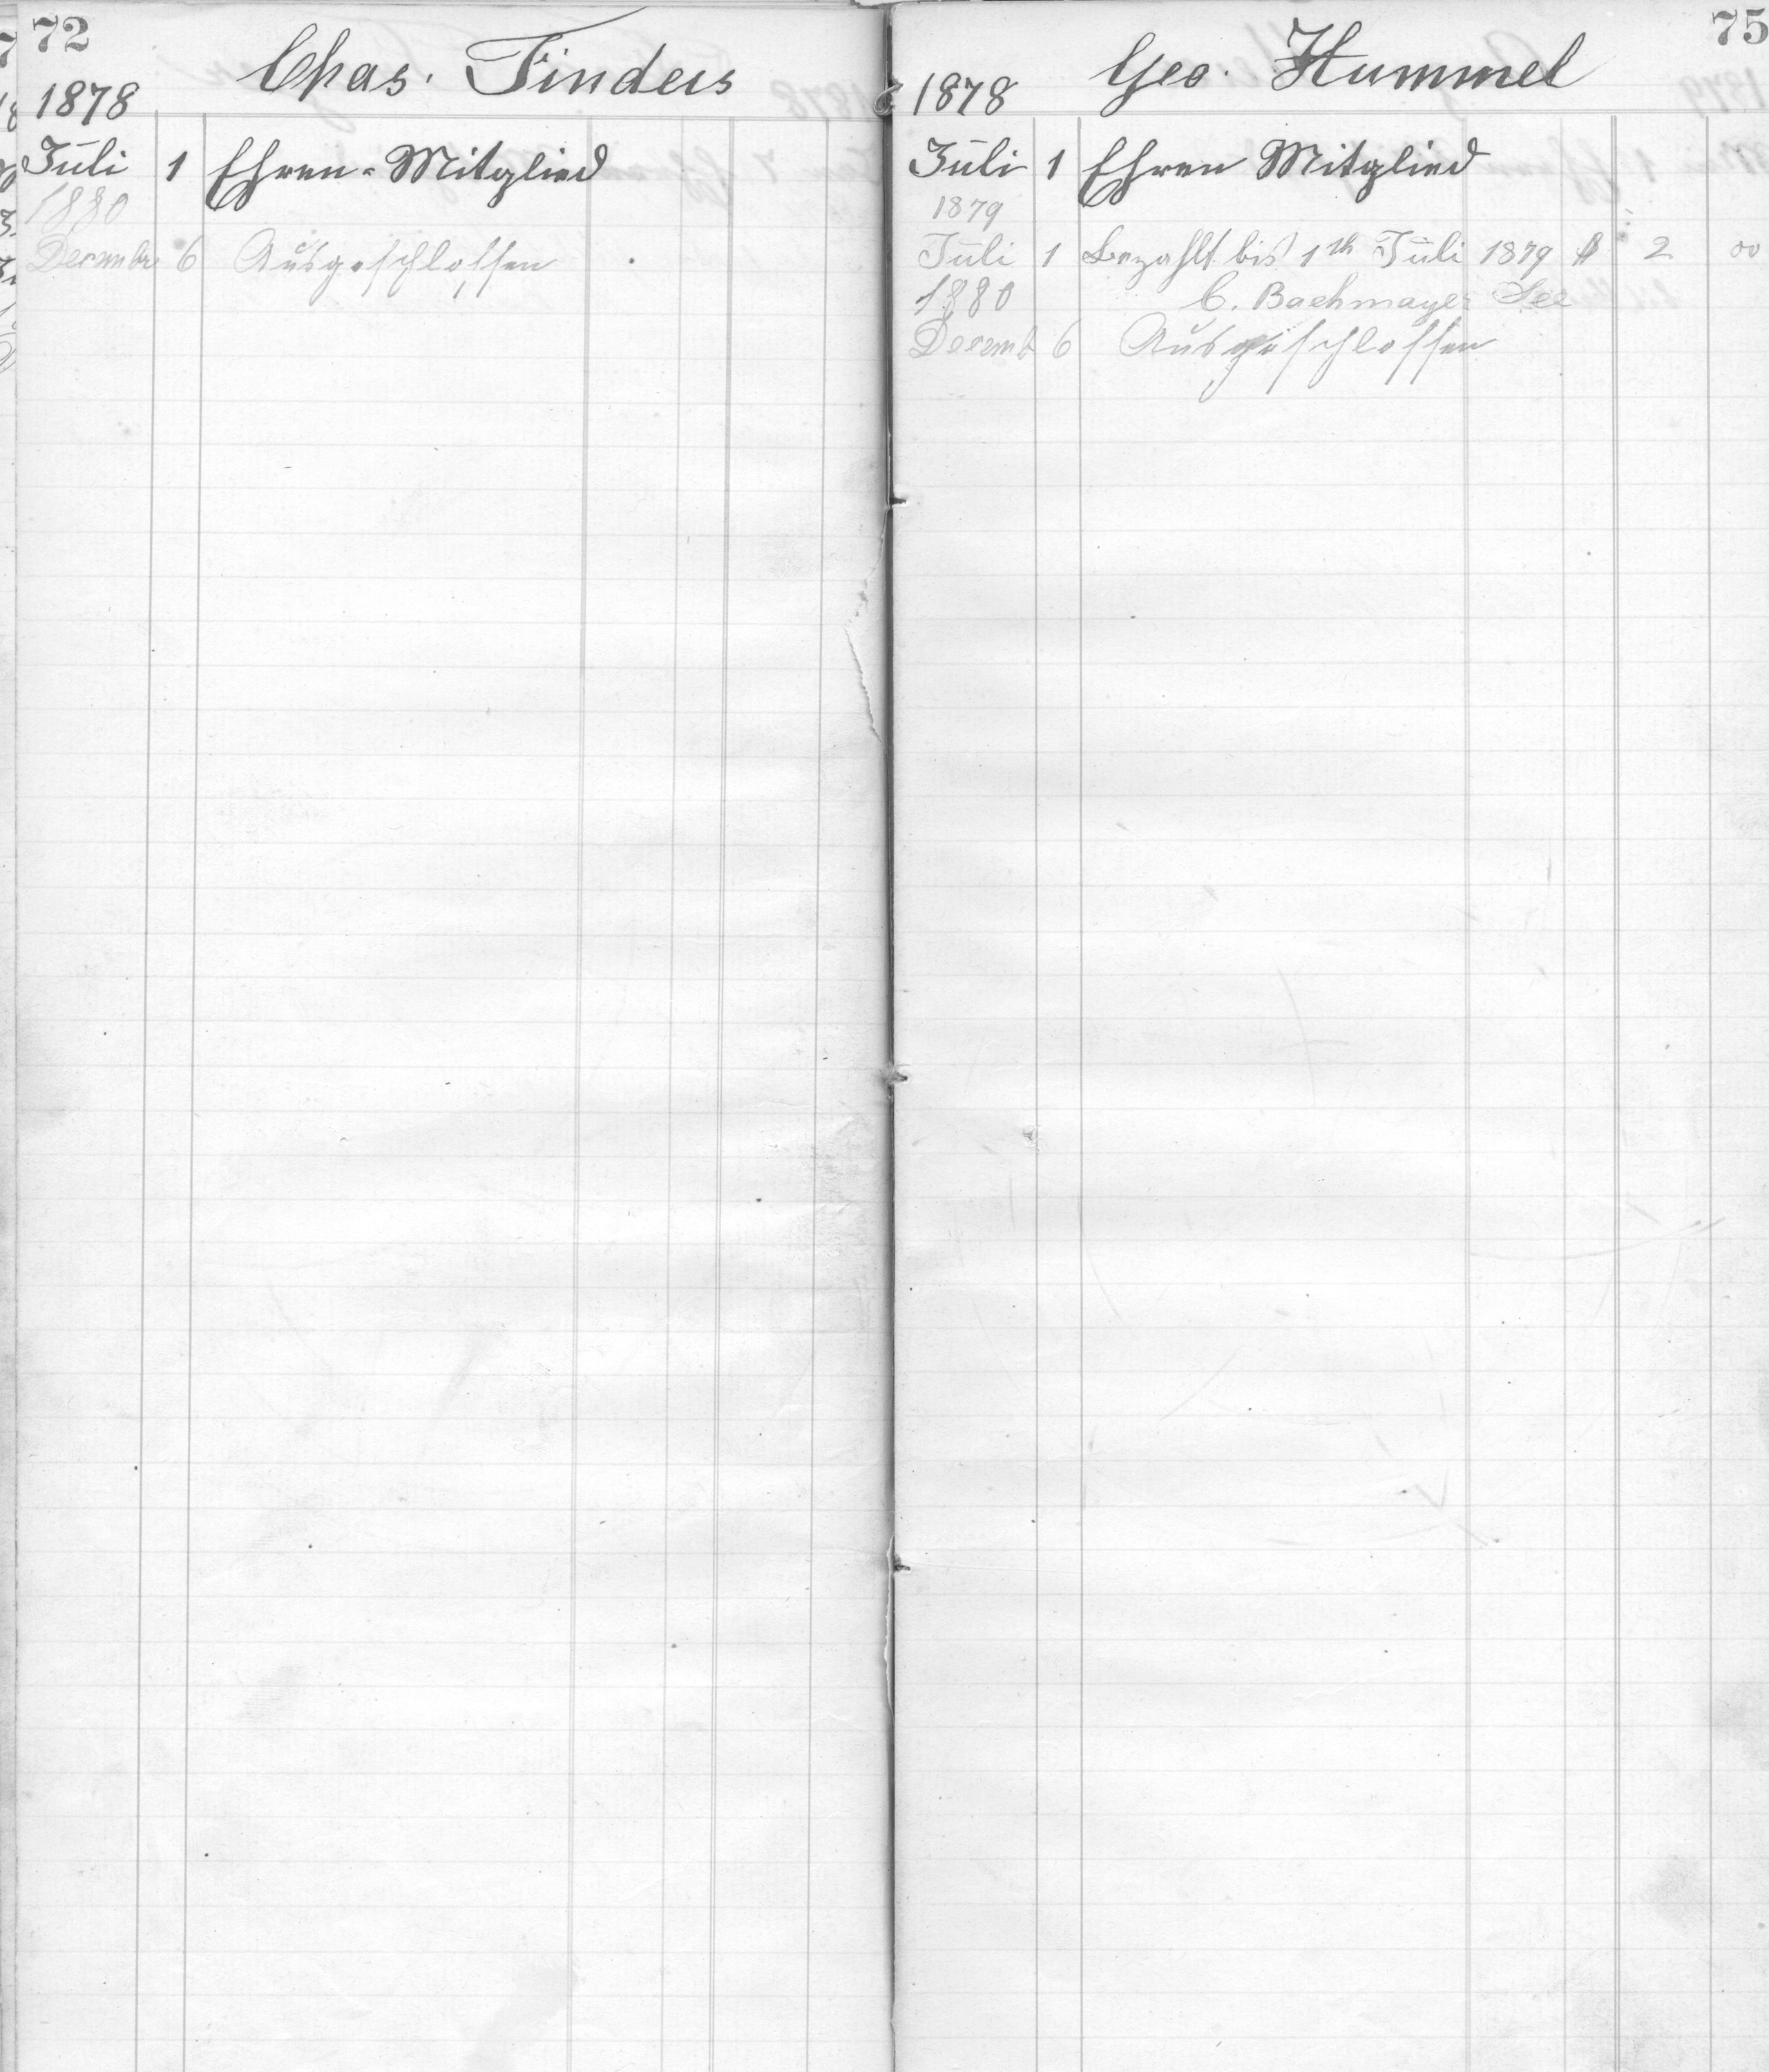 72
Chas. Finders
1878
Juli 1 Ehren-Mitglied
1880
December 6 Ausgeschlossen
75
Geo. Hummel
1878
Juli 1 Ehren Mitglied
1879
Juli 1 Bezahlt bis 1th Juli 1879 $ 2 00
1880 C. Bachmayer Sec
Decemb 6 Ausgeschlossen